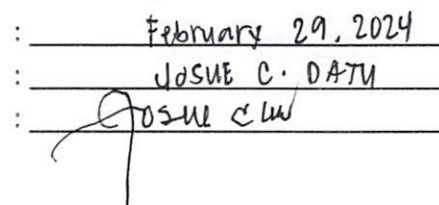 : February 29, 2024
: JOSUE C. DATU
: Josue